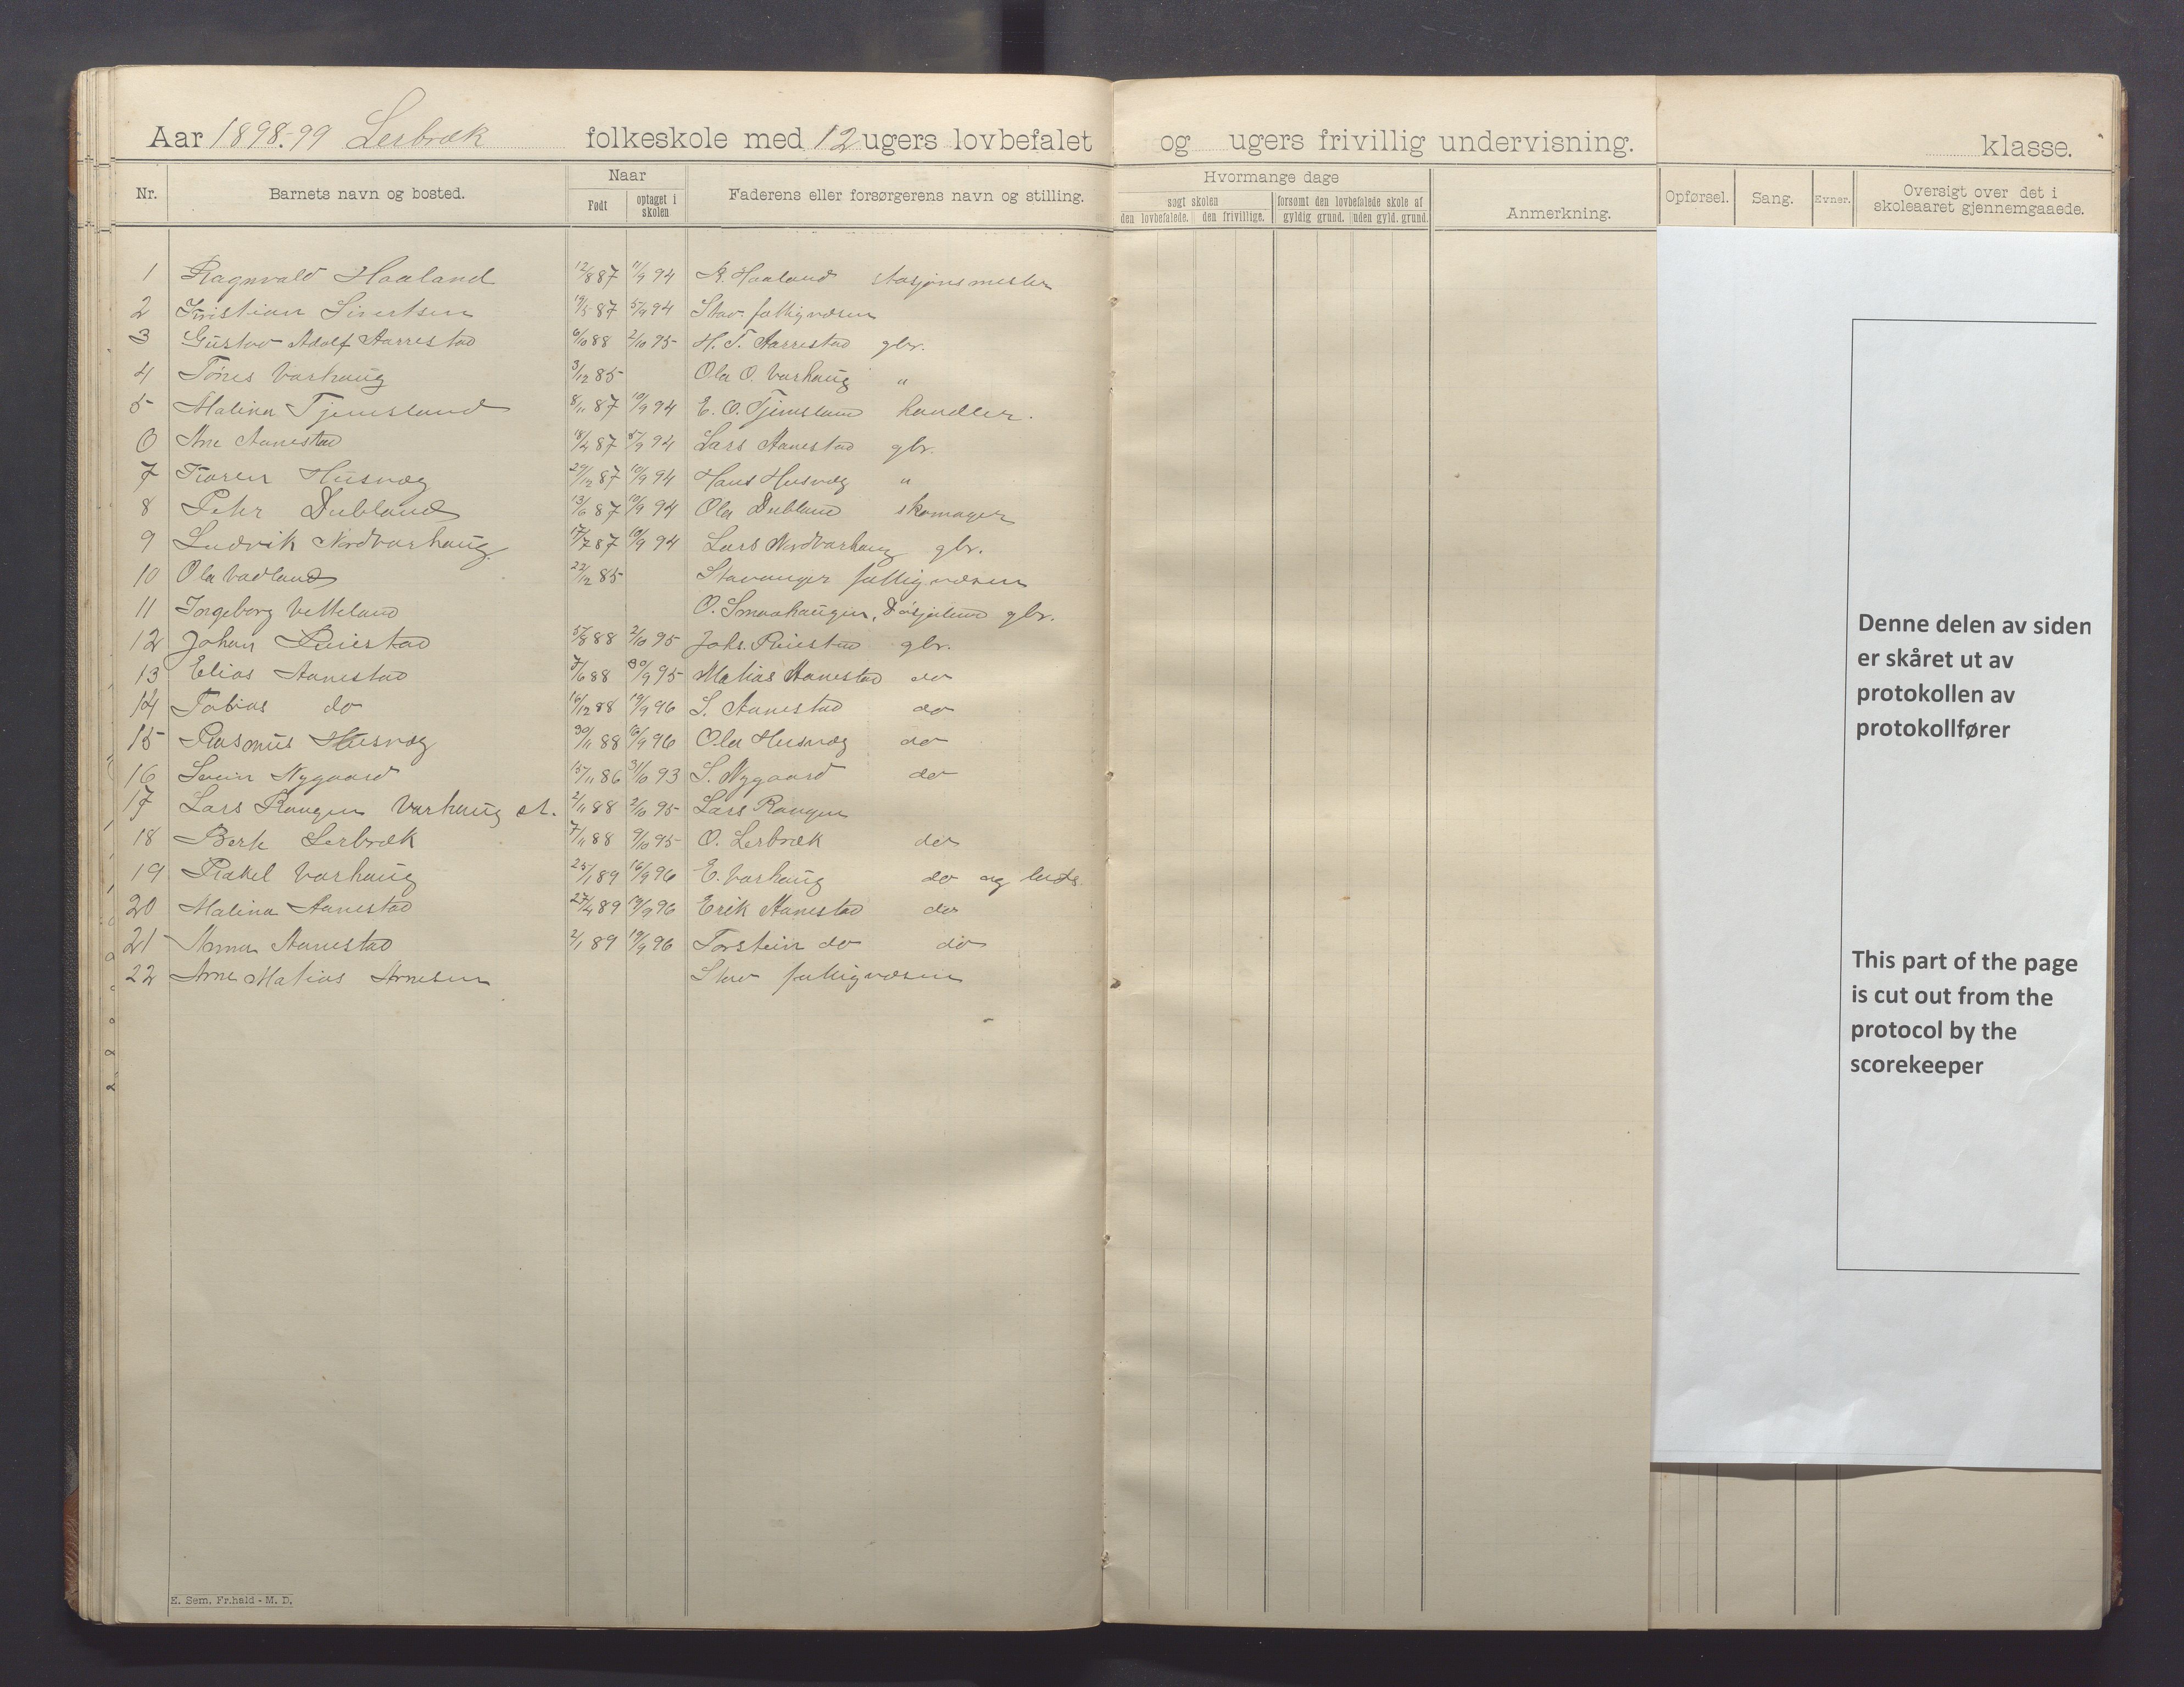 Aar 1898-99 Lerbræk folkeskole med 12 ugers lovbefalet og ugers frivillig undervisning. klasse.
Nr. Barnets navn og bosted. Naar Født optaget i skolen Faderens eller forsørgerens navn og stilling. Hvormange dage søgt skolen den lovbefalede. den frivillige. forsømt den lovbefalede skole af gyldig grund. uden gyld. grund. Anmerkning. Opførsel. Sang. Evner. Oversigt over det i skoleaaret gjennemgaaede.
1 Ragnvald Haaland 12/8 87 11/9 94 R. Haaland stasjonsmester
2 Kristian Sivertsen 19/5 87 5/9 94 Stav. fattigvæsen
3 Gustav Adolf Aarrestad 6/10 88 2/10 95 H. T. Aarrestad gbr.
4 Tönes Varhaug 3/12 85 Ola O. Varhaug "
5 Malina Tjemsland 8/11 87 10/9 94 E. O. Tjemsland handler.
6 Ane Aanestad 18/4 87 5/9 94 Lars Aanestad gbr.
7 Karen Husvæg 29/12 87 10/9 94 Hans Husvæg "
8 Peter Dubland 13/6 87 10/9 94 Ola Dubland skomager
9 Ludvik Nordvarhaug 17/7 87 10/9 94 Lars Nordvarhaug gbr.
10 Ola Vadland 22/12 85 Stavanger fattigvæsen
11 Ingeborg Vetteland O. Smaahaugen, gbr.
12 Johan Reiestad 5/8 88 2/10 95 Johs. Reiestad gbr.
13 Elias Aanestad 7/6 88 30/9 95 Matias Aanestad do
14 Tobias do 16/12 88 19/9 96 S. Aanestad do
15 Rasmus Husvæg 30/11 88 16/9 96 Ola Husvæg do
16 Svein Nygaard 15/11 86 31/10 93 S. Nygaard do
17 Lars Raugen Varhaug st. 2/11 88 2/10 95 Lars Raugen
18 Berte Lerbræk 7/11 88 9/10 95 O. Lerbræk do
19 Rakel Varhaug 25/1 89 16/9 96 E. Varhaug do og
20 Malina Aanestad 27/4 89 19/9 96 Erik Aanestad do
21 Anna Aanestad 2/1 89 19/9 96 Torstein do do
22 Arne Matias Arnesen Stav fattigvæsen
E. Sem, Fr.hald - M. D.
Denne delen av siden
er skåret ut av
protokollen av
protokollfører
This part of the page
is cut out from the
protocol by the
scorekeeper